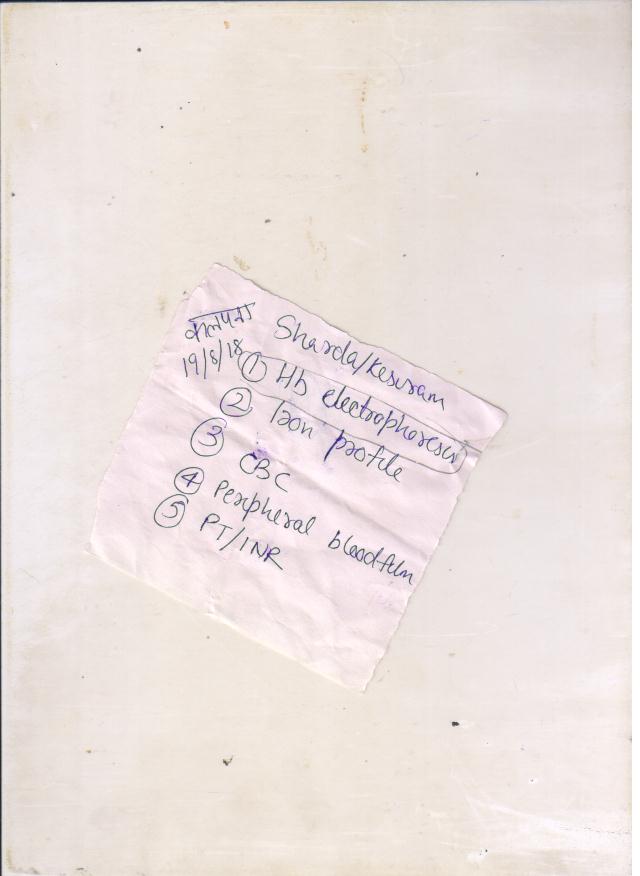 कल्पना
19/8/18
Sharda/Kesuram
① Hb electrophoresis
② Iron profile
③ CBC
④ Peripheral bloodfilm
⑤ PT/INR